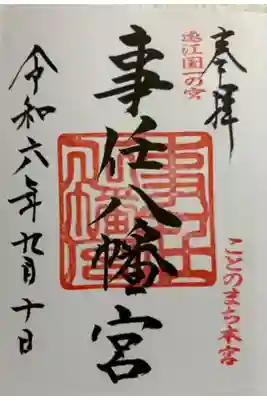 奉拝
遠江国一の宮
事任八幡宮
事任八幡宮
ことのまち本宮
令和六年九月十日